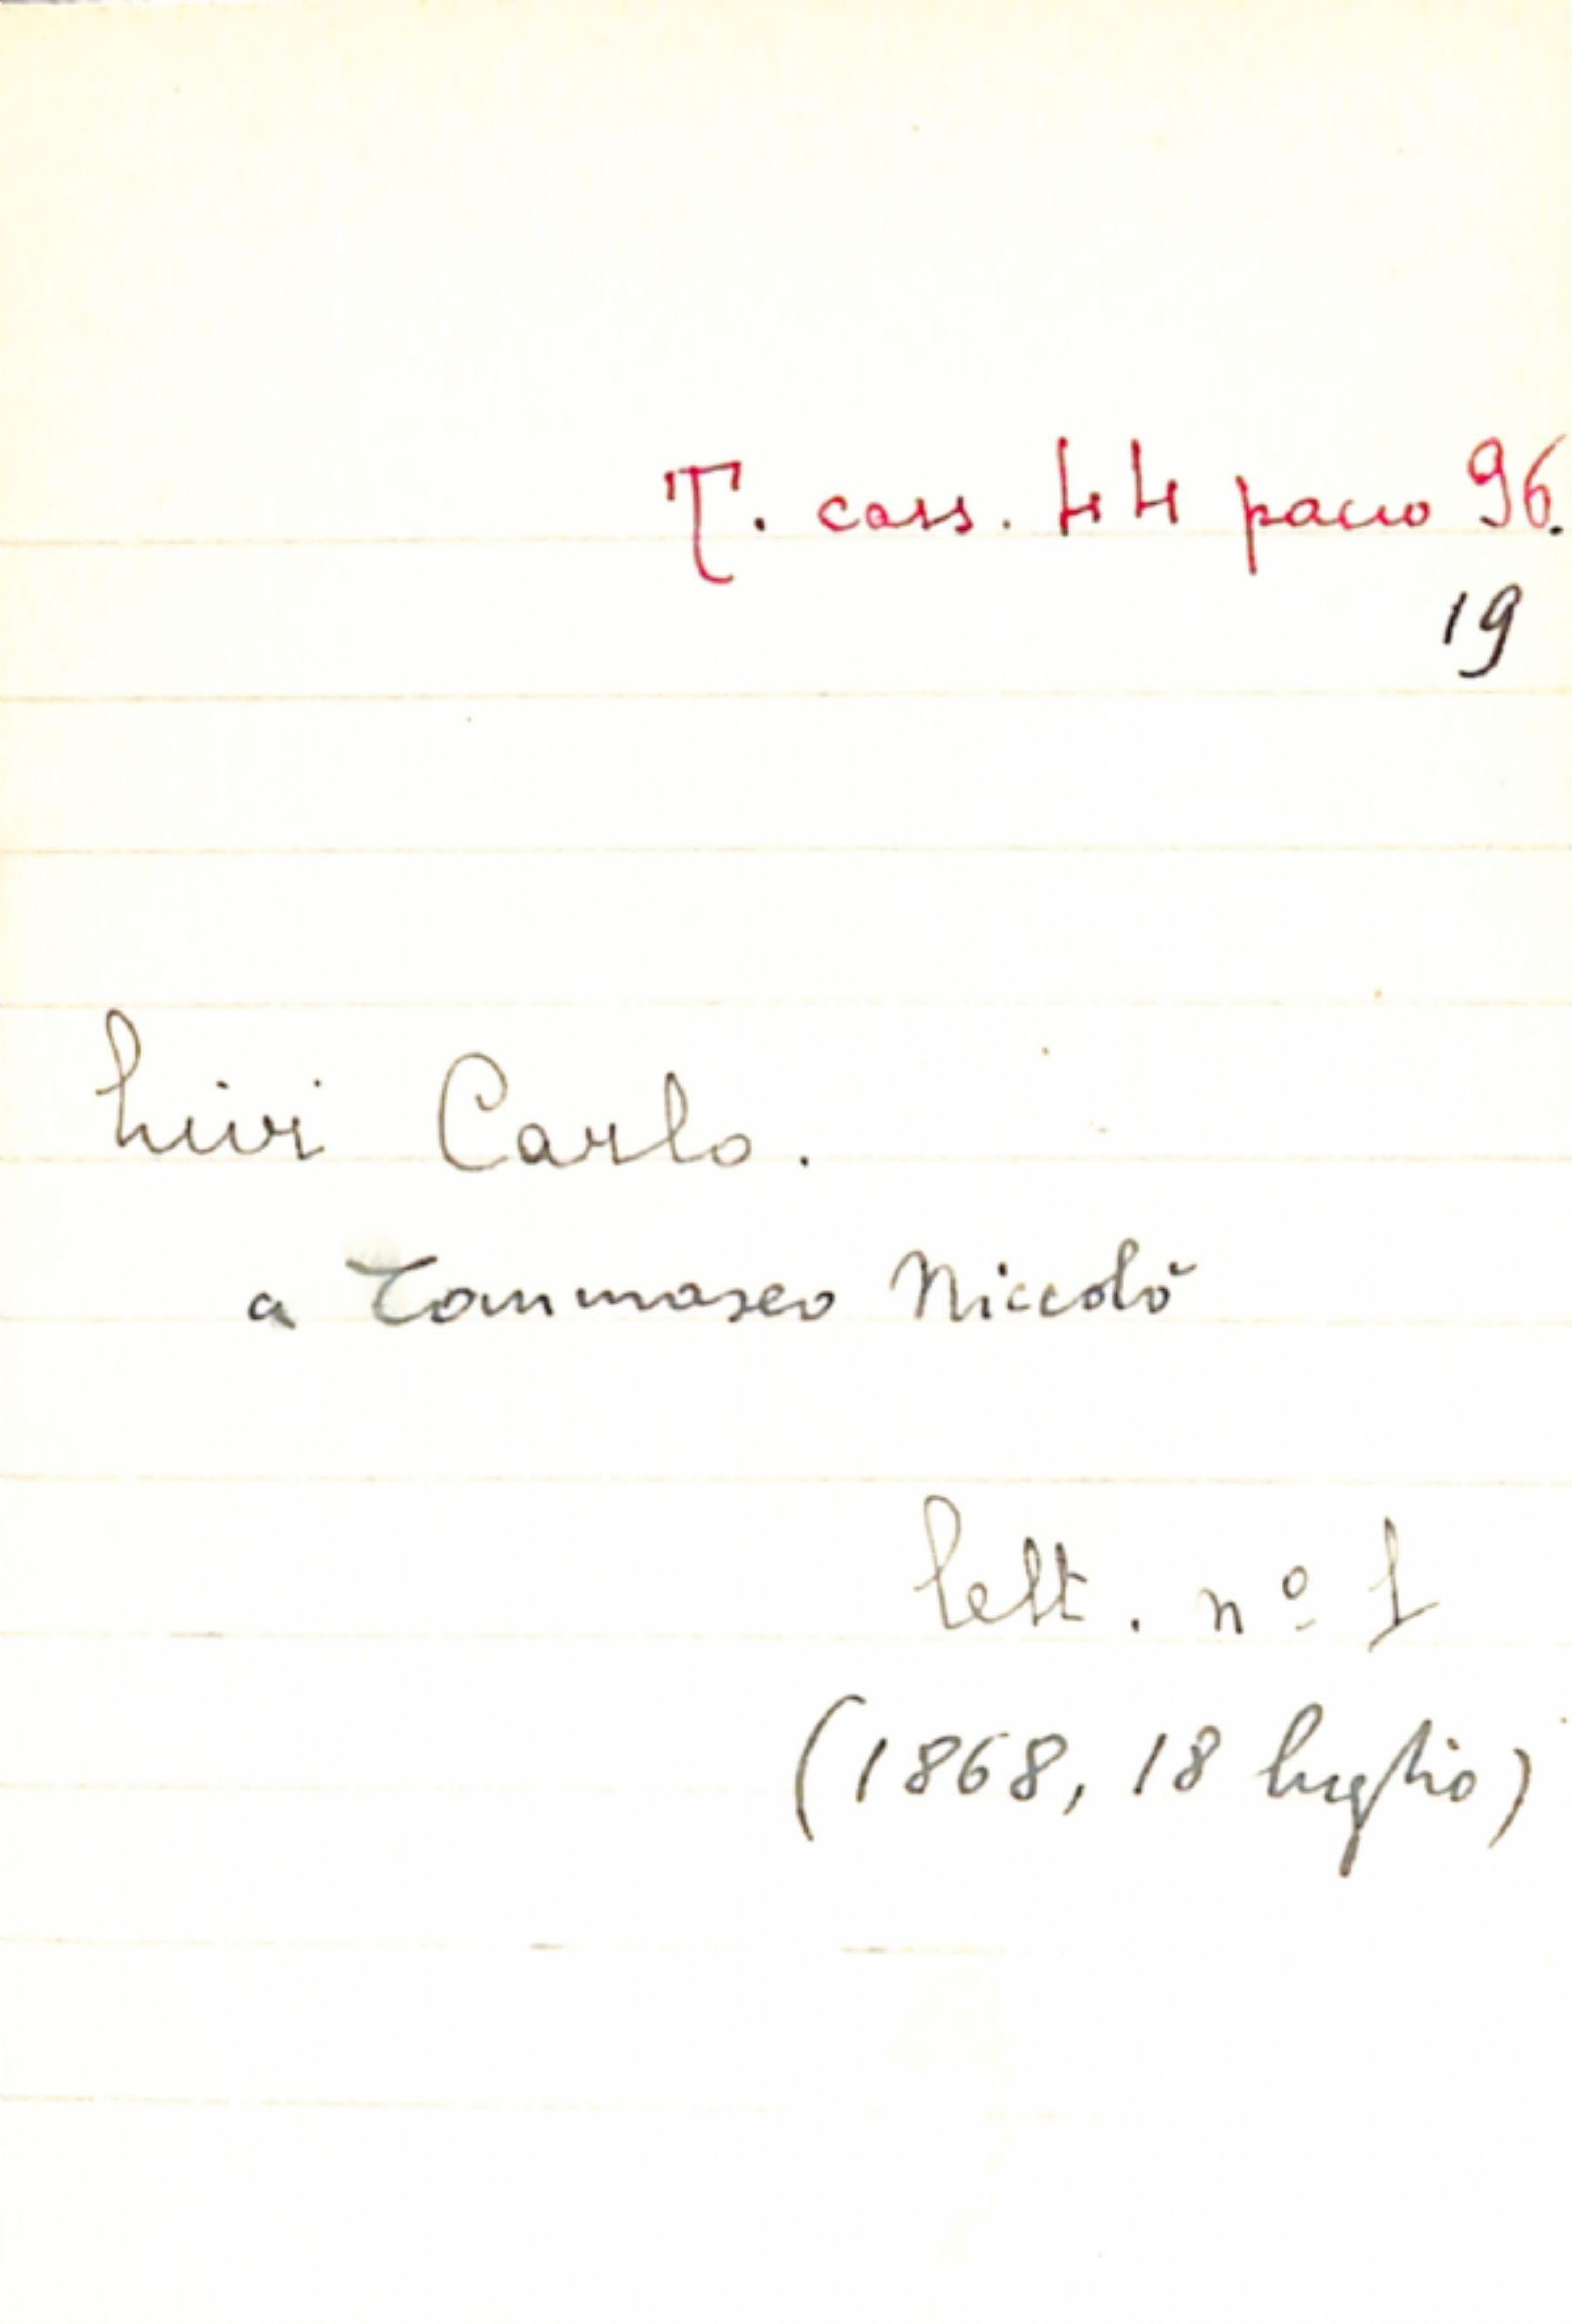 T. cass. 44 pacco 96.
19
Livi Carlo.
a Tommaseo Niccolò
Lett. nº 1
(1868, 18 luglio)